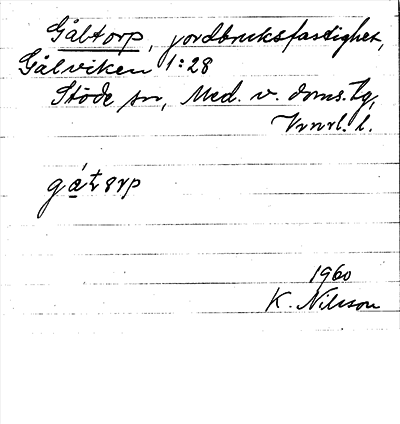 Gåltorp, jordbruksfastighet,
Gålviken 1:28
Stöde sn, Med. v. doms. tg,
Vrnrl. l.
1960
K. Nilsson